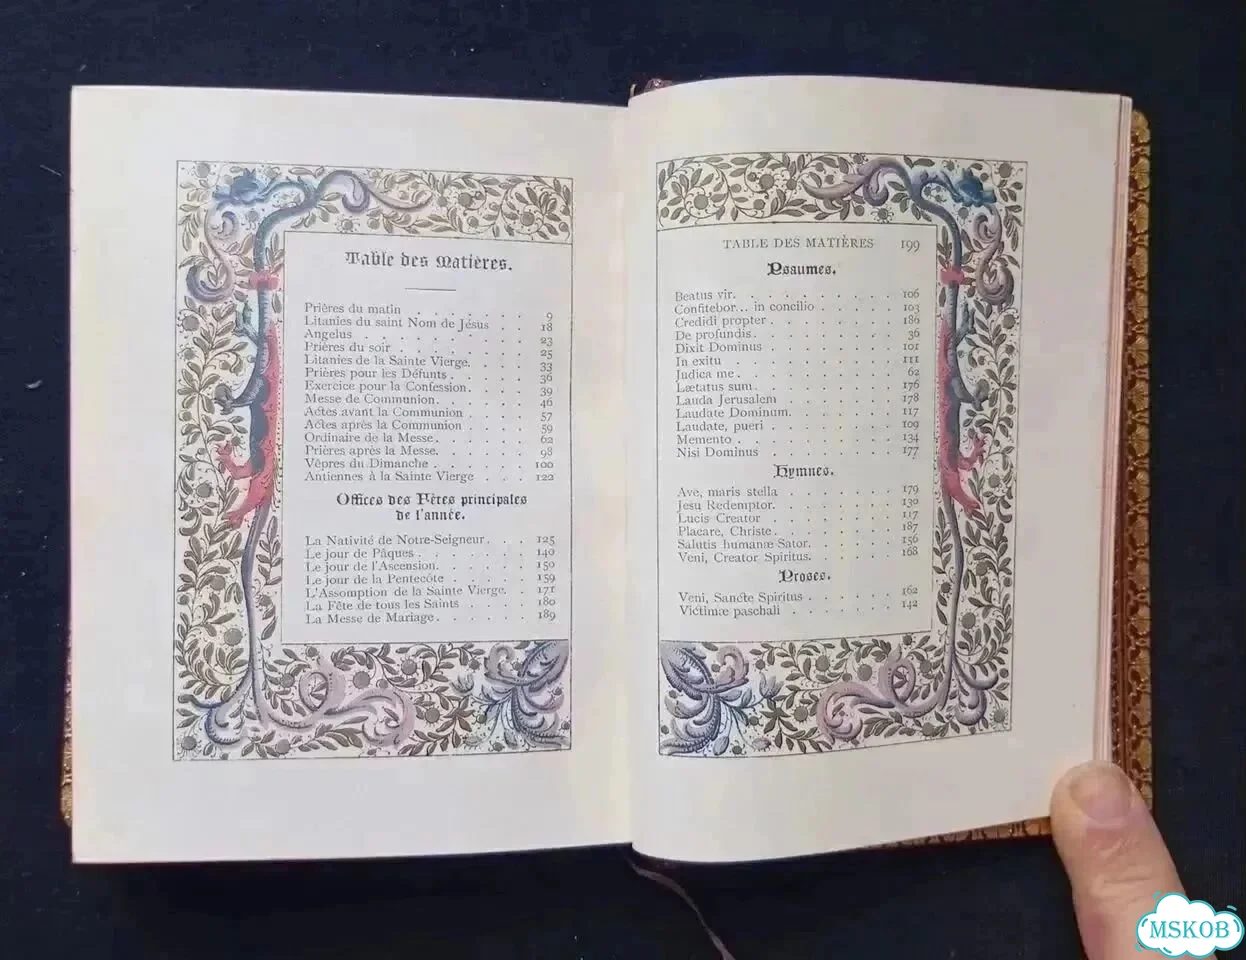 Table des Matières.
Prières du matin . . . . . . 9
Litanies du saint Nom de Jésus . . . 18
Angelus . . . . . . . . 23
Prières du soir . . . . . . . 25
Litanies de la Sainte Vierge. . . . . 33
Prières pour les Défunts. . . . . . 36
Exercice pour la Confession. . . . . 39
Messe de Communion. . . . . . 46
Actes avant la Communion . . . . . 57
Actes après la Communion . . . . . 59
Ordinaire de la Messe. . . . . . . 62
Prières après la Messe. . . . . . . 98
Vêpres du Dimanche . . . . . . . 100
Antiennes à la Sainte Vierge . . . . 122
Offices des Fêtes principales
de l'année.
La Nativité de Notre-Seigneur. . . 125
Le jour de Pâques . . . . . . . 140
Le jour de l'Ascension. . . . . . 150
Le jour de la Pentecôte . . . . . 159
L'Assomption de la Sainte Vierge. . 171
La Fête de tous les Saints . . . . 180
La Messe de Mariage. . . . . . 189
TABLE DES MATIÈRES 199
Psaumes.
Beatus vir. . . . . . . . . . 106
Confitebor... in concilio . . . . . 103
Credidi propter . . . . . . . . 186
De profundis. . . . . . . . . 36
Dixit Dominus . . . . . . . . 101
In exitu . . . . . . . . . . 111
Judica me . . . . . . . . . . 62
Lætatus sum . . . . . . . . . 176
Lauda Jerusalem . . . . . . . 178
Laudate Dominum. . . . . . . 117
Laudate, pueri . . . . . . . . 109
Memento . . . . . . . . . . 134
Nisi Dominus . . . . . . . . . 177
Hymnes.
Ave, maris stella . . . . . . . 179
Jesu Redemptor. . . . . . . . 130
Lucis Creator . . . . . . . . 117
Placare, Christe . . . . . . . . 187
Salutis humanæ Sator. . . . . . 156
Veni, Creator Spiritus. . . . . . 168
Proses.
Veni, Sancte Spiritus . . . . . . 162
Victimæ paschali . . . . . . . 142
MSKOB